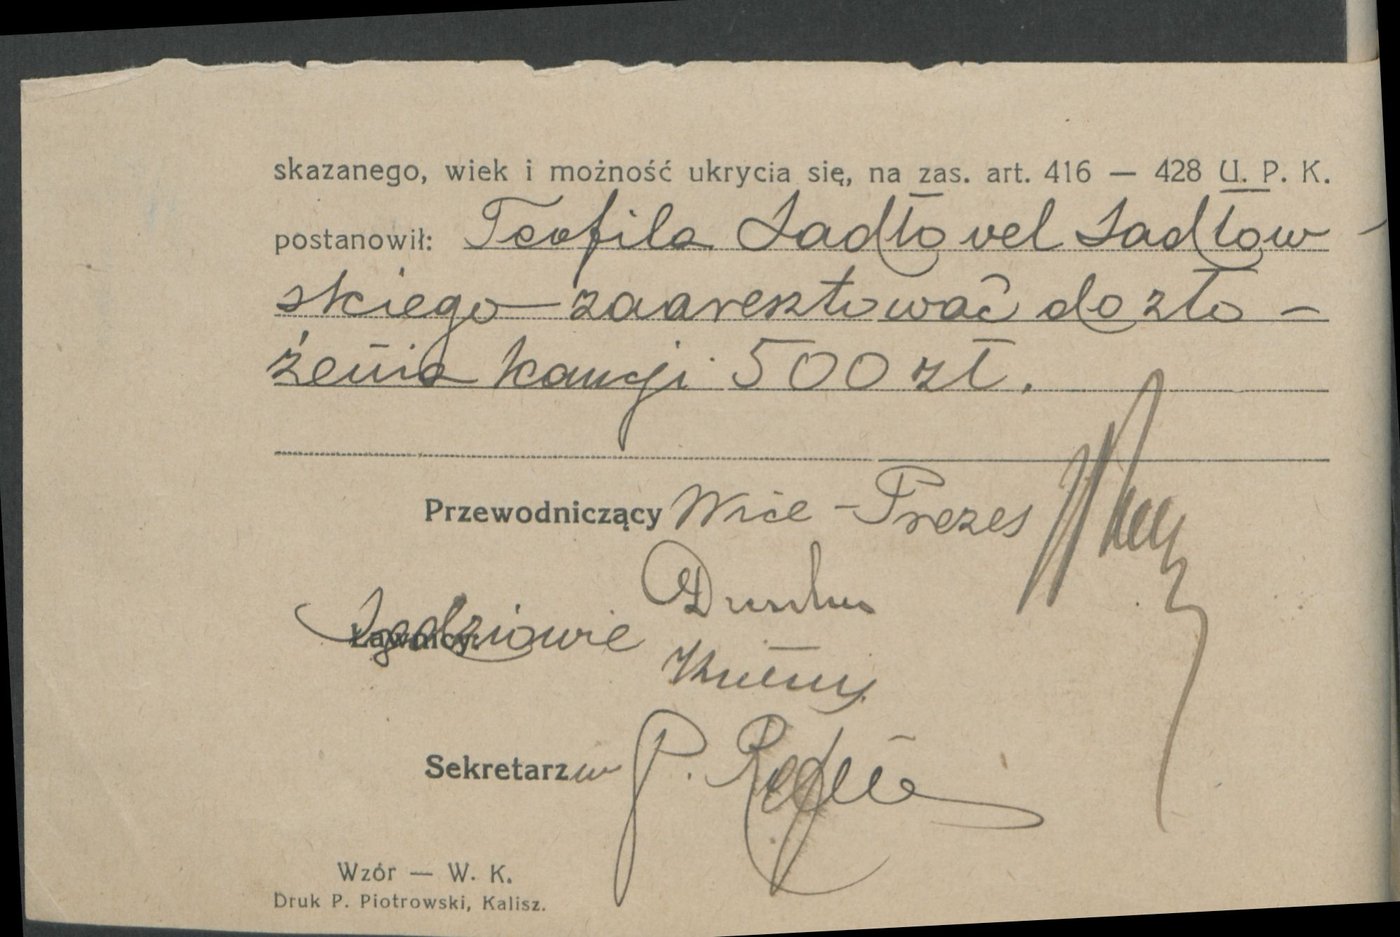 skazanego, wiek i możność ukrycia się, na zas. art. 416 — 428 U. P. K.
postanowił: Teofila Sadło vel Sadłow
skiego zaaresztować do zło -
żenia kaucji 500 zł.
Przewodniczący Wice - Prezes
Sędziowie
Ławnicy:
Sekretarz w P.
Wzór — W. K.
Druk P. Piotrowski, Kalisz.